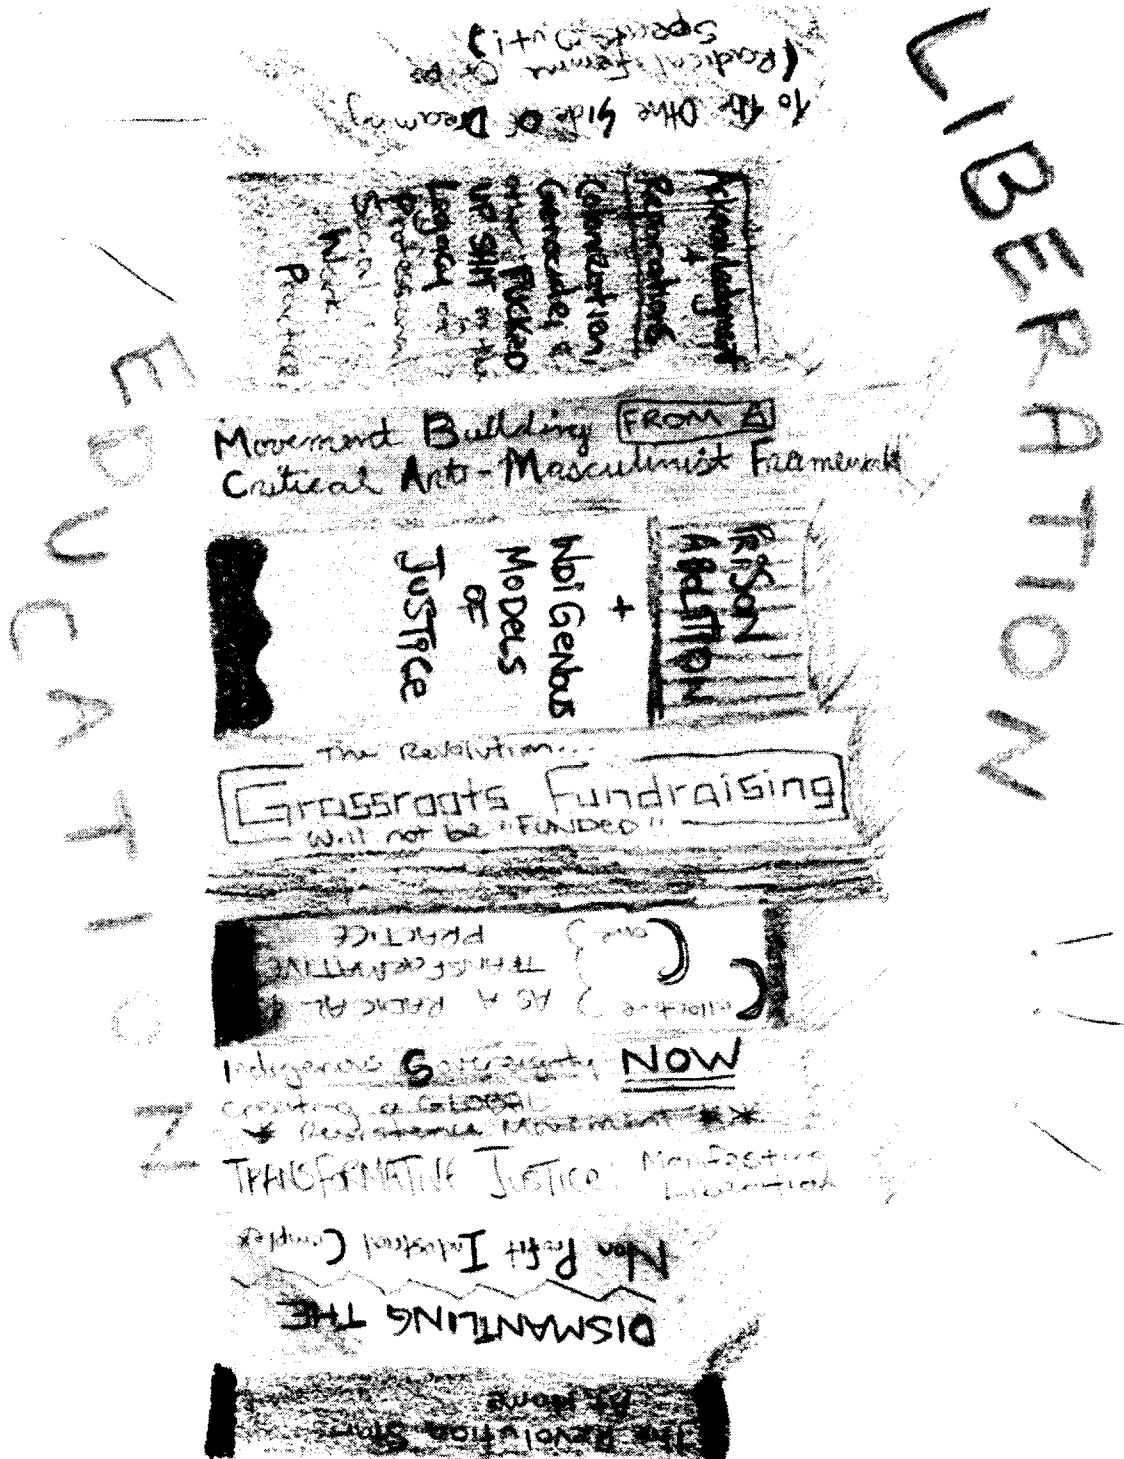 LIBERATION
EDUCATION
To the Other Side Of Dreaming
(Radical femme
Speak Out!)
Acknowledgment
+
Reparations
Colonization,
Genocide, &
other FUCKED
UP SHIT in the
Legacy of
Professional
Social
Work
Practice
Movement Building FROM A
Critical Anti-Masculinist Framework
PRISON
ABOLITION
+
INDIGENOUS
MODELS
OF
JUSTICE
The Revolution...
Grassroots Fundraising
Will not be "FUNDED"
Collective } AS A RADICAL
TRANSFORMATIVE
Care } PRACTICE
Indigenous Sovereignty NOW
Creating a GLOBAL
Resistance Movement
TRANSFORMATIVE JUSTICE: Manifesting
Liberation
DISMANTLING THE
Non Profit Industrial Complex
The Revolution Starts
At Home